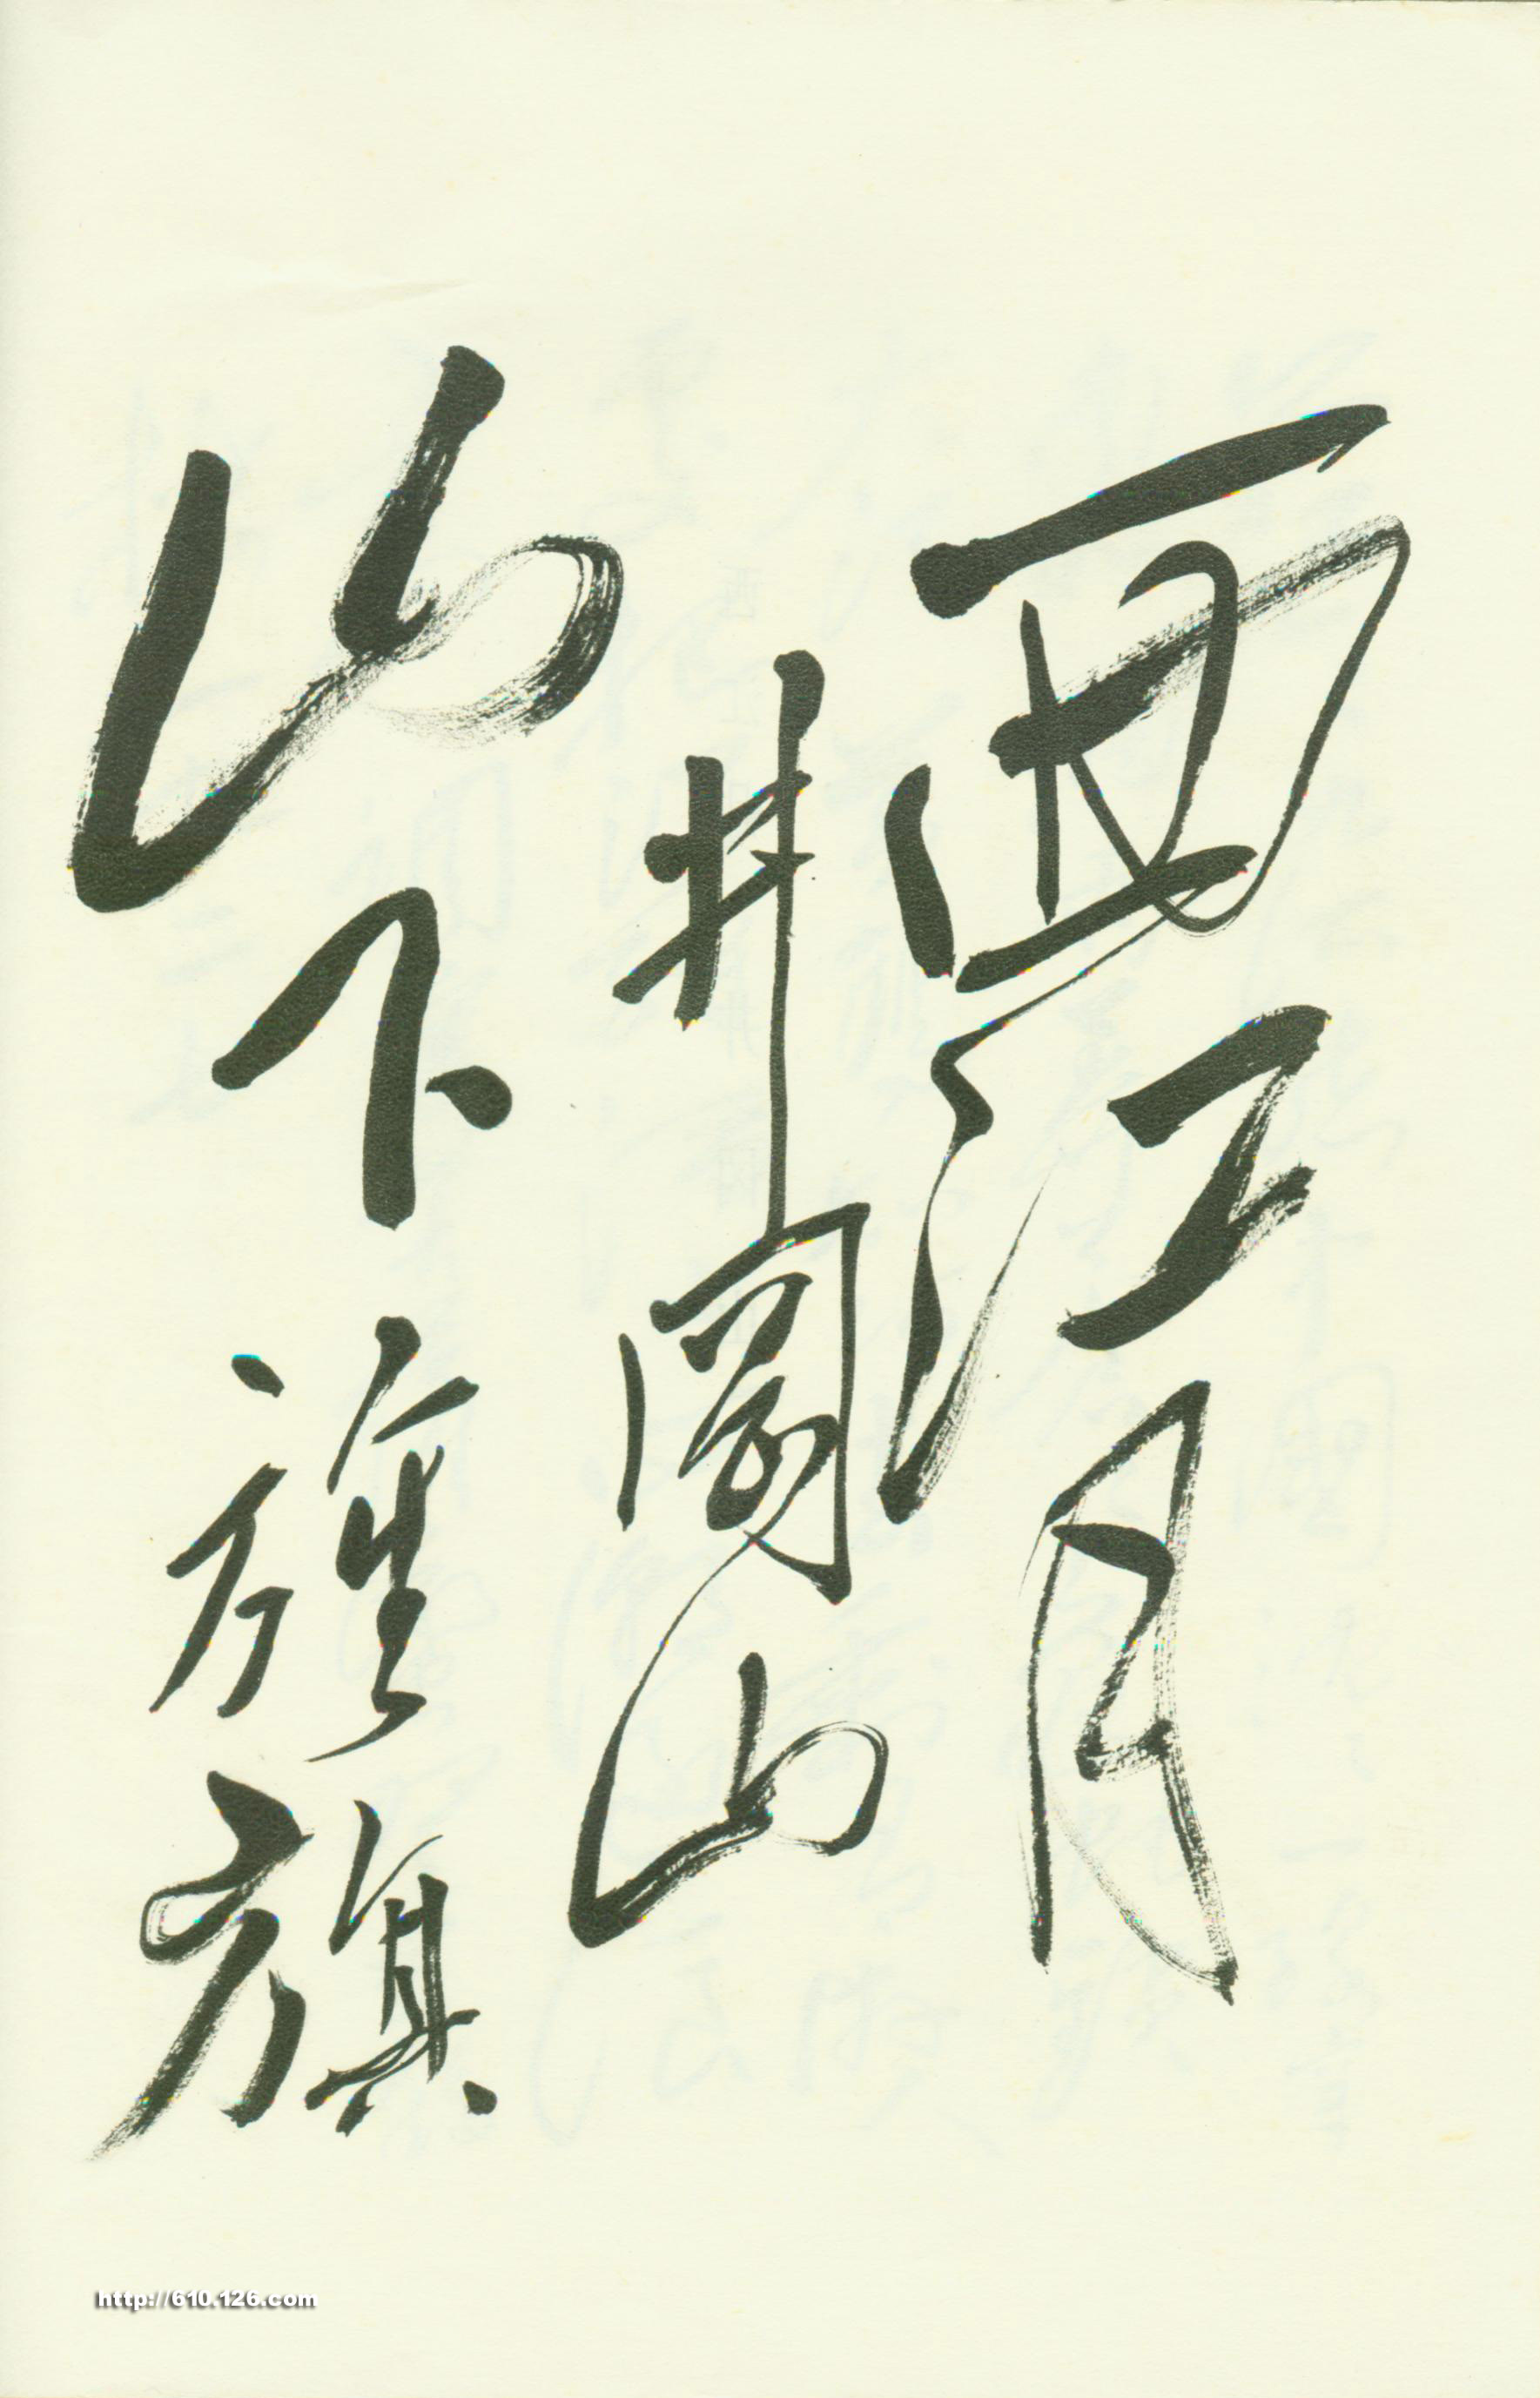 西江月
井岡山
山下旌旗
http://610.126.com